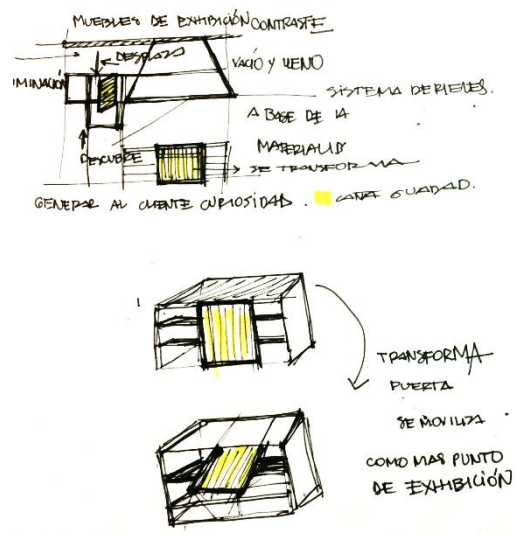 MUEBLES DE EXHIBICIÓN CONTRASTE
DESPLAZA
VACIO Y LLENO
IMINACIÓN
SISTEMA DE RIELES.
A BASE DE LA
DESCUBRE
MATERIALID
SE TRANSFORMA
GENERAR AL CLIENTE CURIOSIDAD. CAÑA GUADAD.
TRANSFORMA
PUERTA
SE MOVILIZA
COMO MAS PUNTO
DE EXHIBICIÓN